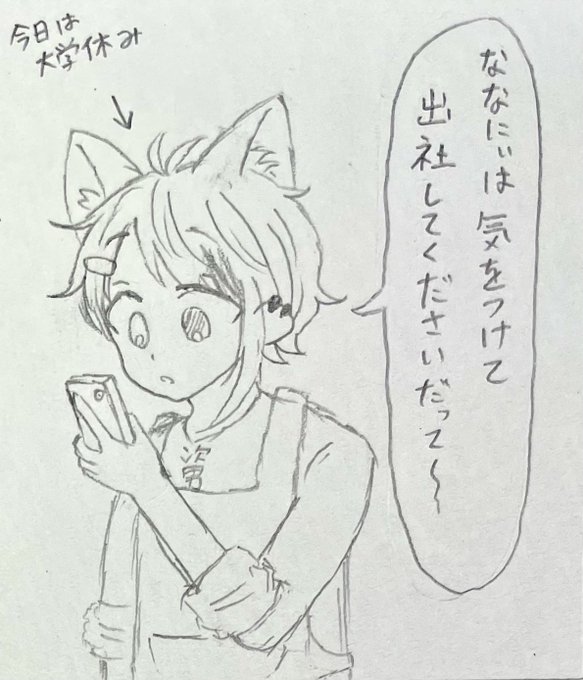 今日は
大学休み
ななにぃは気をつけて
出社してくださいだって〜
次男